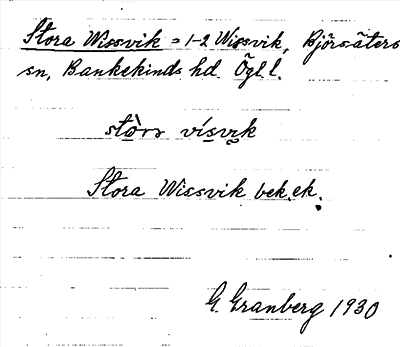 Stora Wissvik = 1-2 Wissvik, Björsäters
sn, Bankekinds hd. Ögl l.
stòrs vísvik
Stora Wissvik bek. ek.
G. Granberg 1930